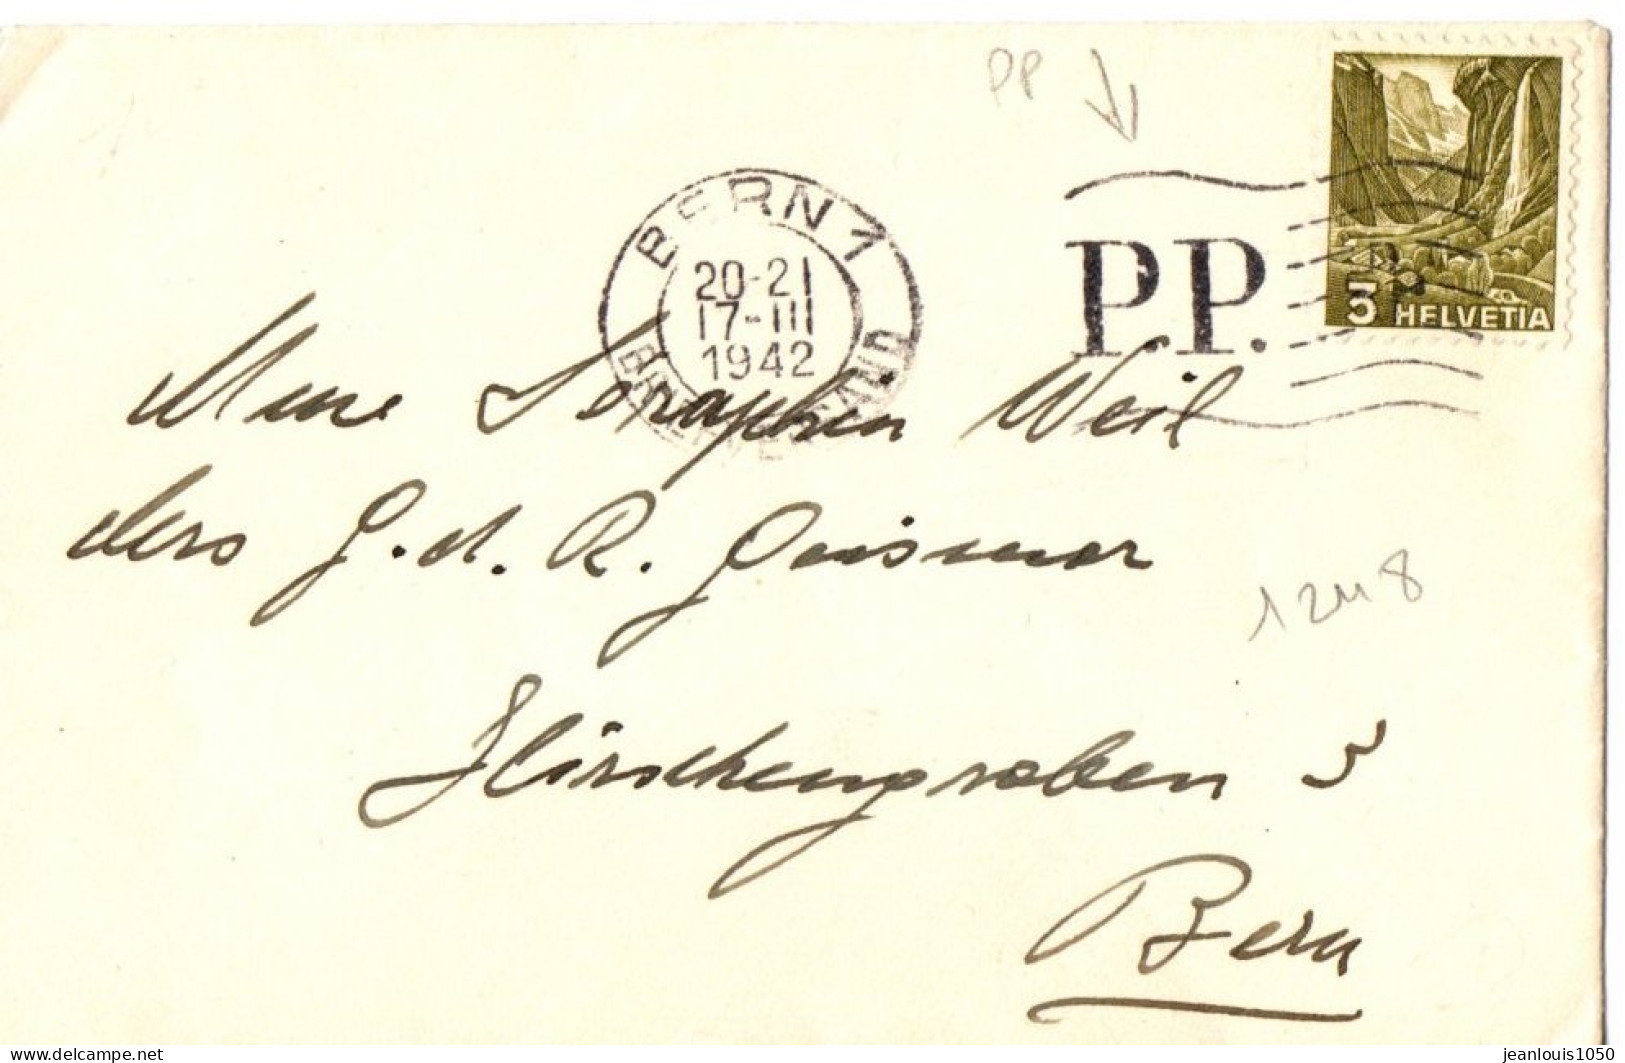 PP
BERN 1
20-21
17-III
1942
BRIEFVERSAND
P.P.
3 HELVETIA
Mme Séraphin Weil
G. d. R.
1248
Hirschengraben 5
Bern
www.delcampe.net
jeanlouis1050